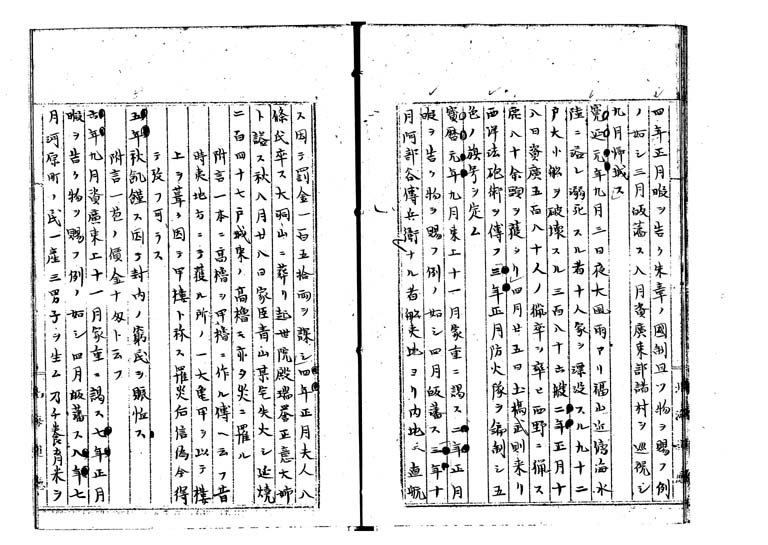 四年正月暇ヲ告ク朱章ノ國制且フ物ヲ賜フ例
ノ如シ三月皈藩ス八月資廣東部諸村ヲ巡視シ
九月帰城ス
寛延元年九月三日夜大風雨アリ福山近傍海水
陸ニ溢レ溺死スル者十人家ヲ壊没スル九十二
戸大小舩ヲ破壊スル三百八十六艘二年正月十
八日資廣五百八十人ノ猟卒ヲ率ヒ西野ニ猟ス
鹿八十余頭ヲ獲タリ四月廿五日土橋武則来リ
西洋法砲術ヲ傳フ三年正月防火隊ヲ編制シ五
色ノ旗号ヲ定ム
寳暦元年九月東上十一月家重ニ謁ス二年正月
暇ヲ告ク物ヲ賜フ例ノ如シ四月皈藩ス三年十
月阿部谷傳兵衛ナル者舩夷地ヨリ内地ニ直航
ス因テ罰金一百五拾両ヲ課シ四年正月夫人八
條氏卒ス大洞山ニ葬リ起世院殿瑞誉正意大姉
ト諡ス秋八月廿八日家臣青山某宅失火シ延焼
二百四十七戸城楽ノ高櫓ニ亦タ災ニ罹ル
附言一本ニ高櫓ヲ甲櫓ニ作ル傳ヘ云フ昔
時夷地方ニテ獲ル所ノ一大亀甲ヲ以テ楼
上ヲ葺ク因テ甲楼ト称ス羅災后信偽今得
テ攷フ可ラス
五年秋飢饉ス因テ封内ノ窮民ヲ賑恤ス
附言一苞ノ價金十匁ト云フ
六年九月資廣東上十一月家重ニ謁ス七年正月
暇ヲ告ク物ヲ賜フ例ノ如シ四月皈藩ス八年七
月河原町ノ民一産三男子ヲ生ム乃チ養育米ヲ